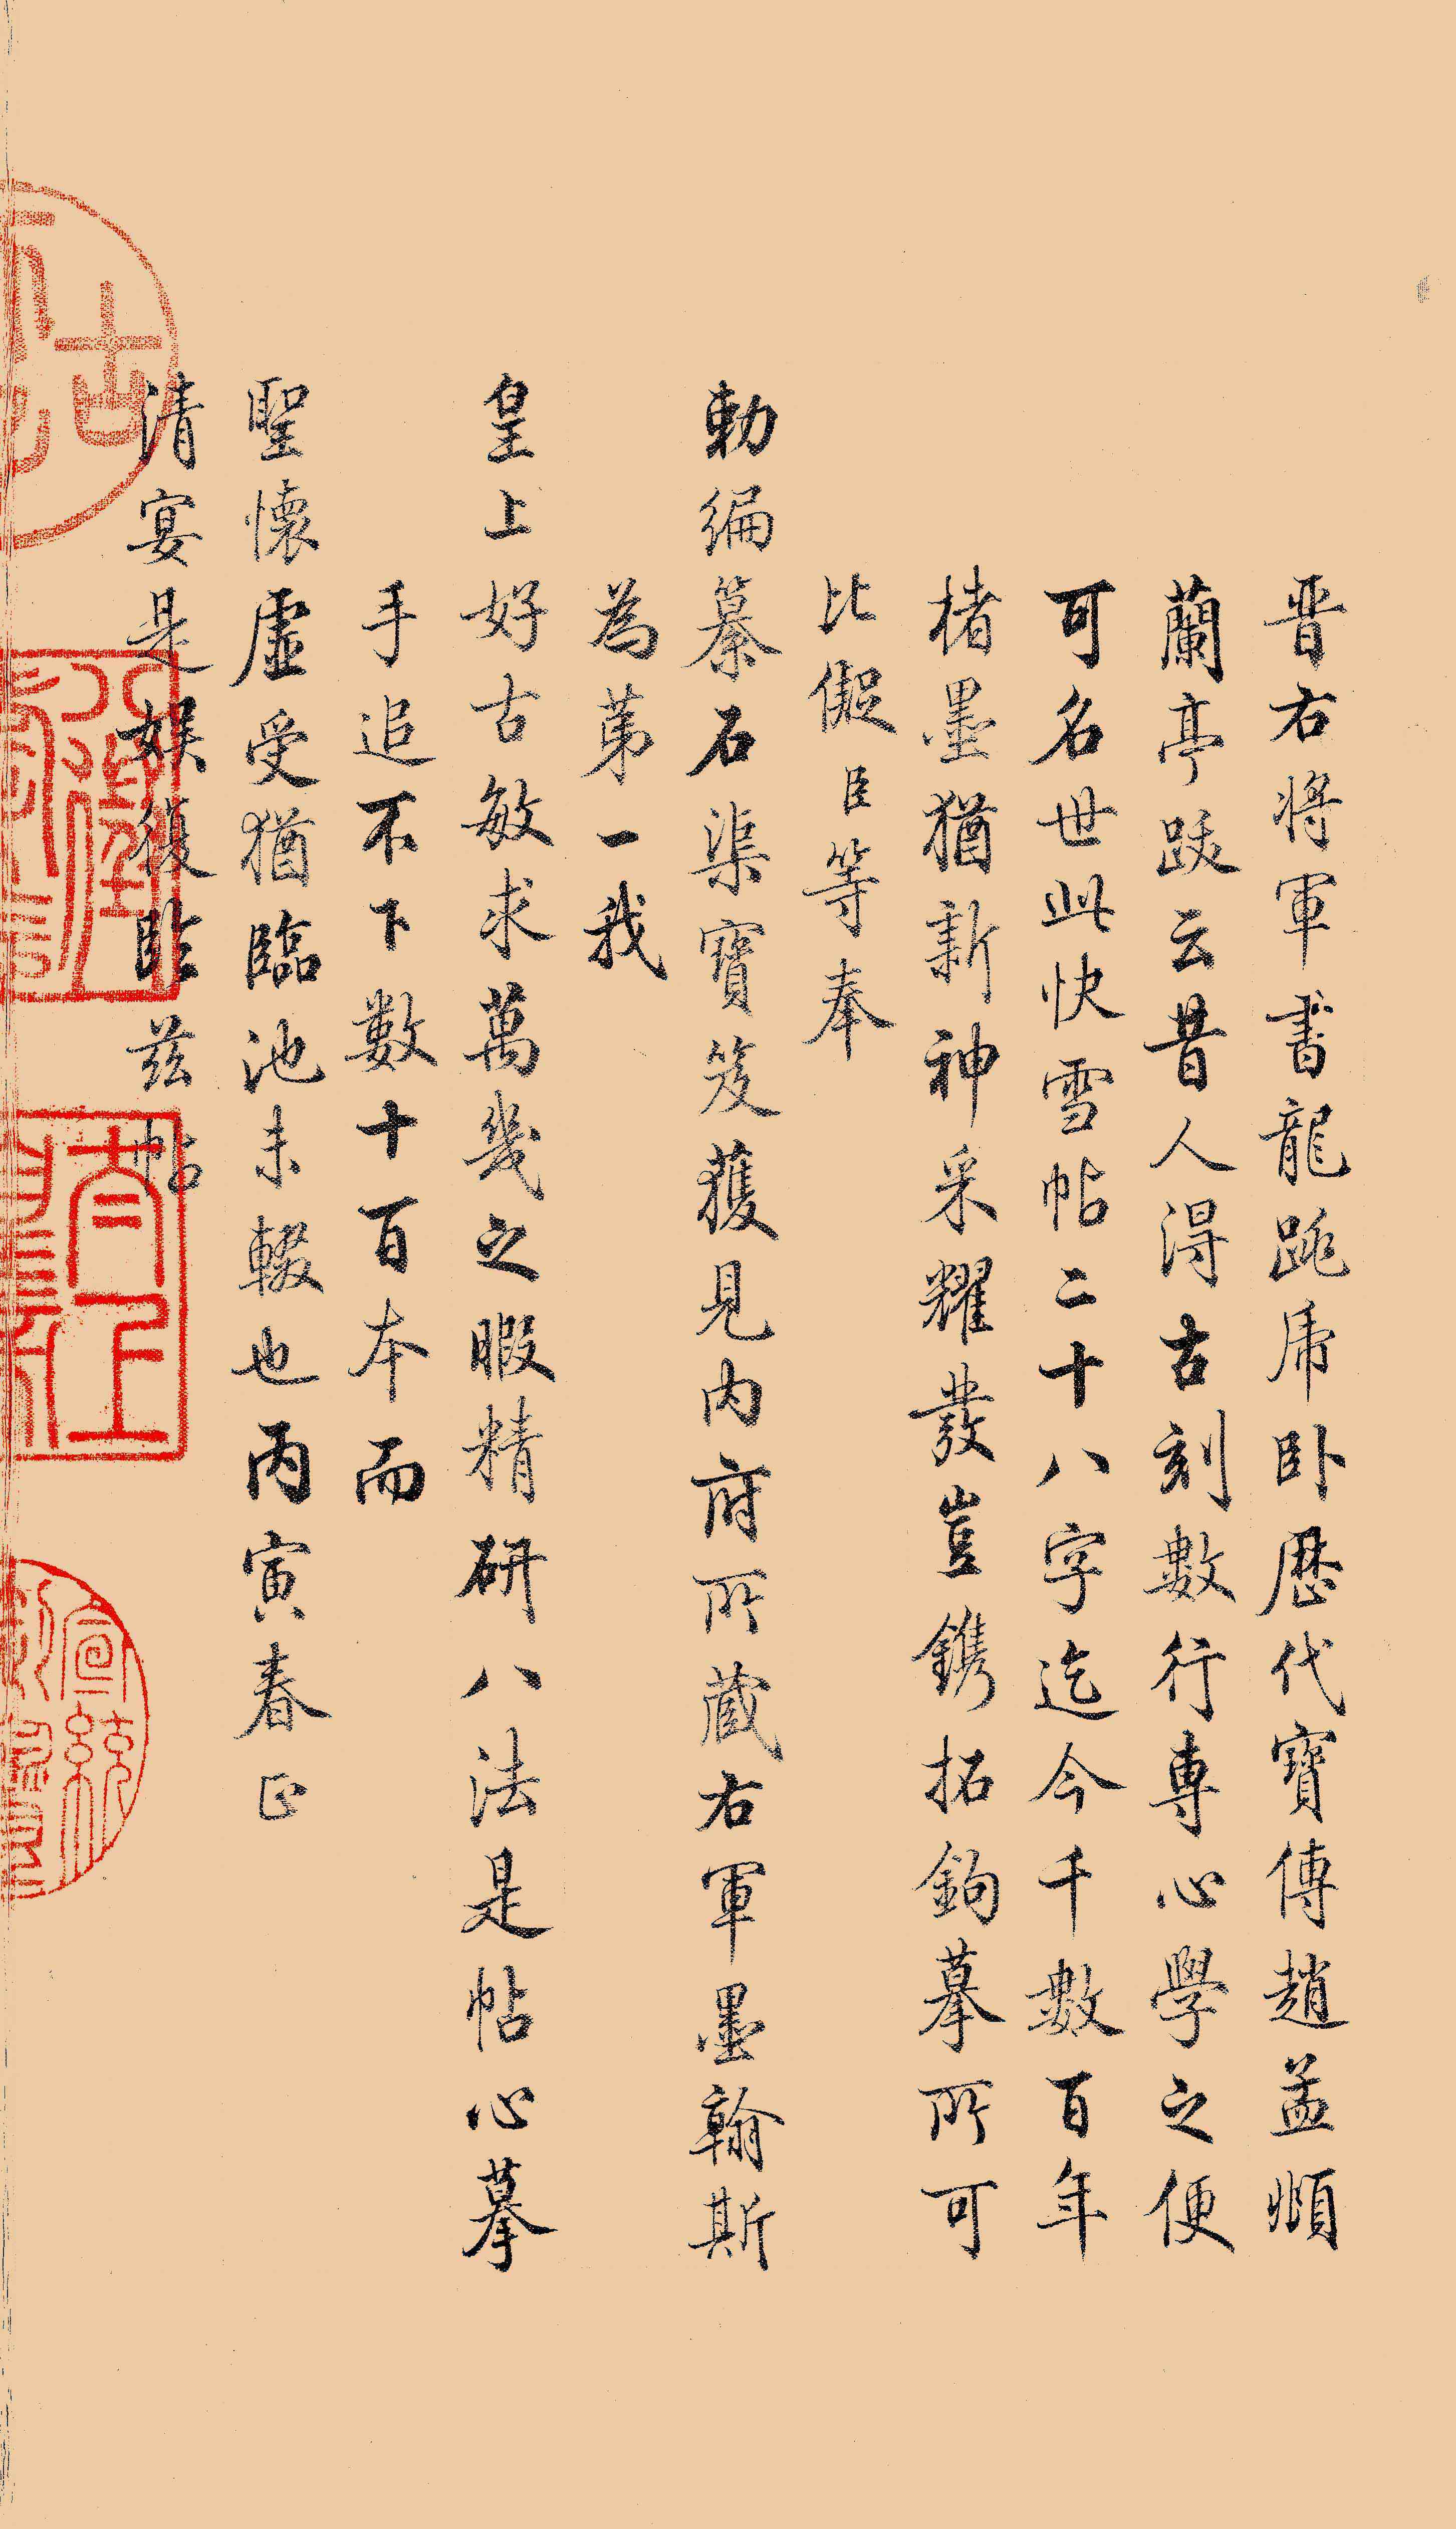 晉右將軍書龍跳虎臥歷代寶傳趙孟頫
蘭亭跋云昔人得古刻數行專心學之便
可名世此快雪帖二十八字迄今千數百年
楮墨猶新神采耀發豈鐫拓鉤摹所可
比儗臣等奉
勅編摹石渠寶笈獲見內府所藏右軍墨翰斯
為第一我
皇上好古敏求萬幾之暇精研八法是帖心摹
手追不下數十百本而
聖懷虛受猶臨池未輟也丙寅春正
清宴是娛復臨茲帖
宣統